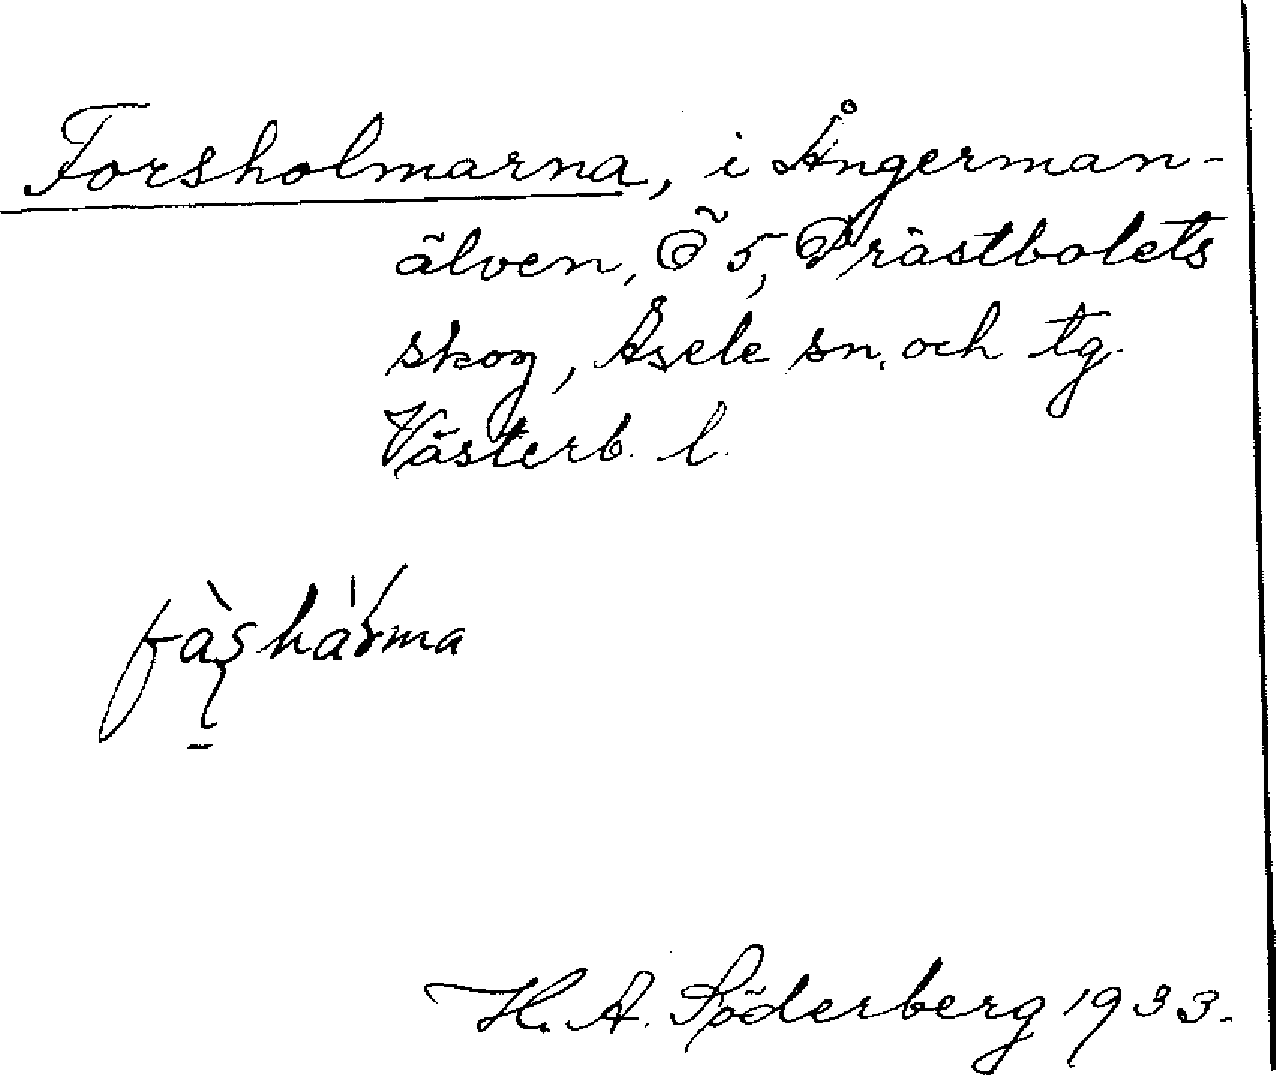 Forsholmarna, i Ångerman-
älven, Ö 5, Prästbolets
skog, Åsele sn. och tg.
Västerb. l.
H. A. Söderberg 1933.